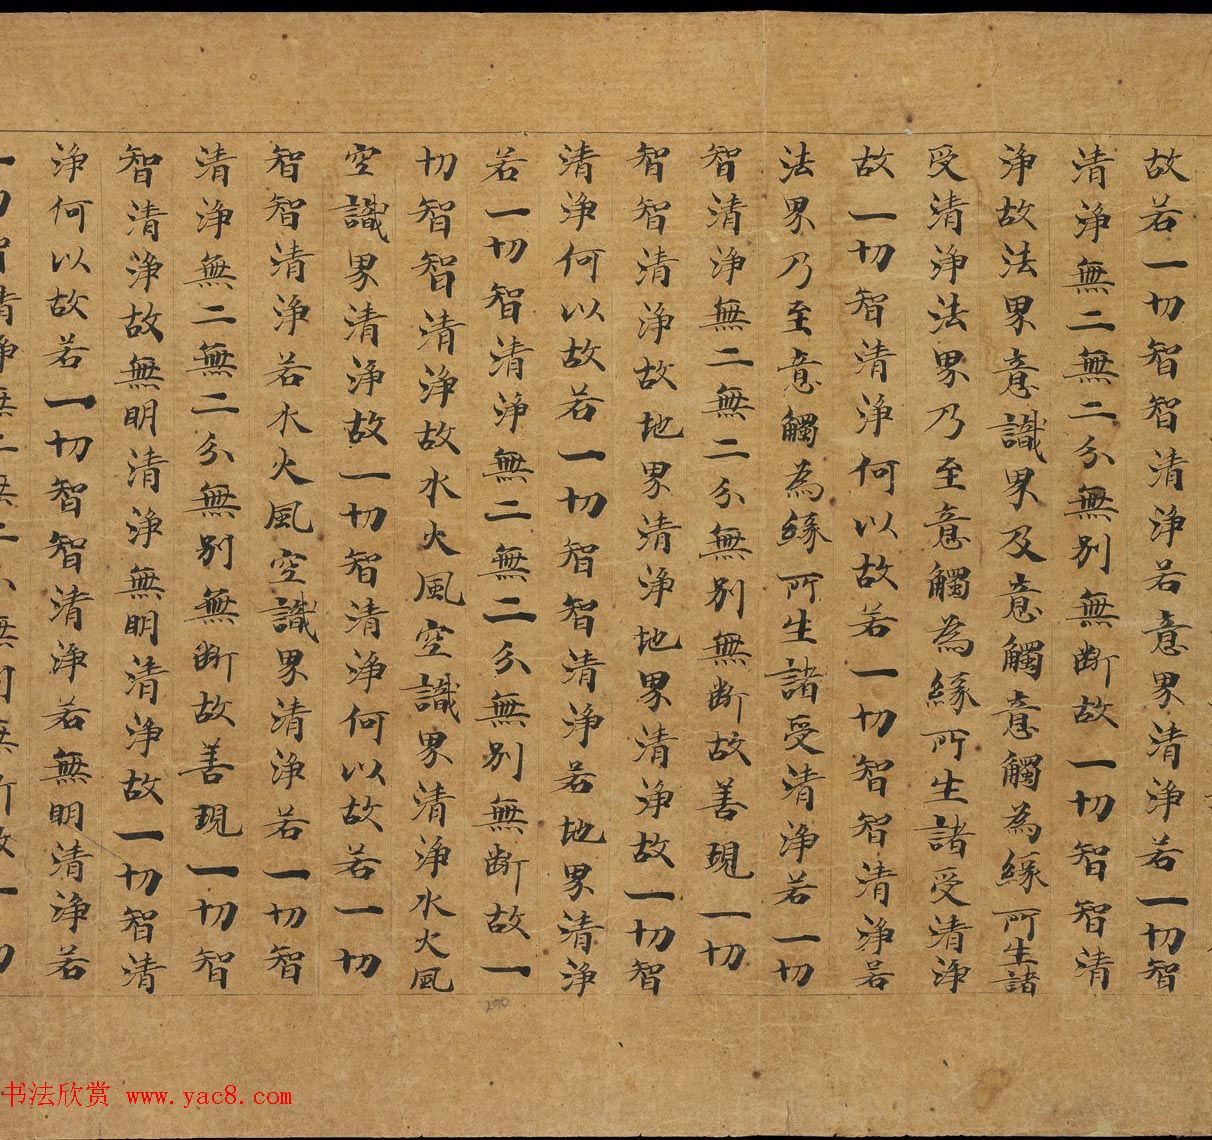 故若一切智智清淨若意界清淨若一切智
清淨無二無二分無別無斷故一切智智清
淨故法界意識界及意觸意觸為緣所生諸
受清淨法界乃至意觸為緣所生諸受清淨
故一切智清淨何以故若一切智智清淨若
法界乃至意觸為緣所生諸受清淨若一切
智清淨無二無二分無別無斷故善現一切
智智清淨故地界清淨地界清淨故一切智
清淨何以故若一切智智清淨若地界清淨
若一切智清淨無二無二分無別無斷故一
切智智清淨故水火風空識界清淨水火風
空識界清淨故一切智清淨何以故若一切
智智清淨若水火風空識界清淨若一切智
清淨無二無二分無別無斷故善現一切智
智清淨故無明清淨無明清淨故一切智清
淨何以故若一切智智清淨若無明清淨若
一切智清淨無二無二分無別無斷故一切
书法欣赏 www.yac8.com